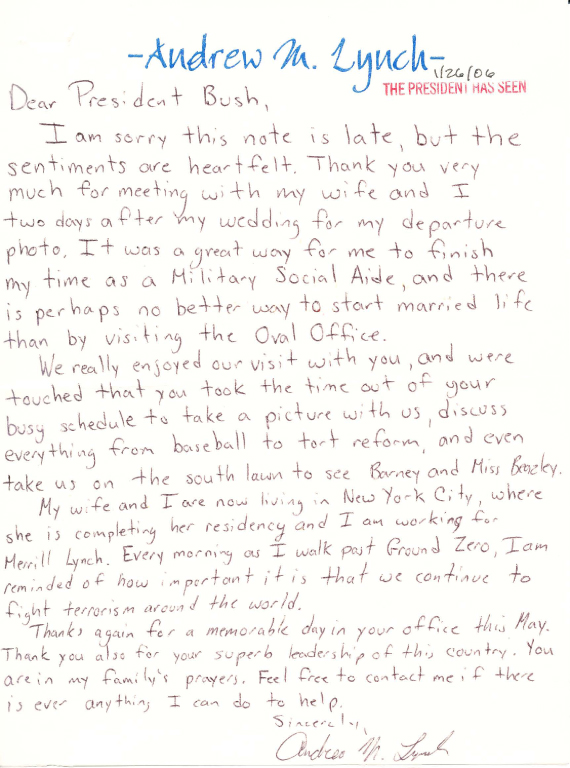 -Andrew M. Lynch-
1/26/06
THE PRESIDENT HAS SEEN
Dear President Bush,
I am sorry this note is late, but the
sentiments are heartfelt. Thank you very
much for meeting with my wife and I
two days after my wedding for my departure
photo. It was a great way for me to finish
my time as a Military Social Aide, and there
is perhaps no better way to start married life
than by visiting the Oval Office.
We really enjoyed our visit with you, and were
touched that you took the time out of your
busy schedule to take a picture with us, discuss
everything from baseball to tort reform, and even
take us on the south lawn to see Barney and Miss Beazley.
My wife and I are now living in New York City, where
she is completing her residency and I am working for
Merrill Lynch. Every morning as I walk past Ground Zero, I am
reminded of how important it is that we continue to
fight terrorism around the world.
Thanks again for a memorable day in your office this May.
Thank you also for your superb leadership of this country. You
are in my family's prayers. Feel free to contact me if there
is ever anything I can do to help.
Sincerely,
Andrew M. Lynch